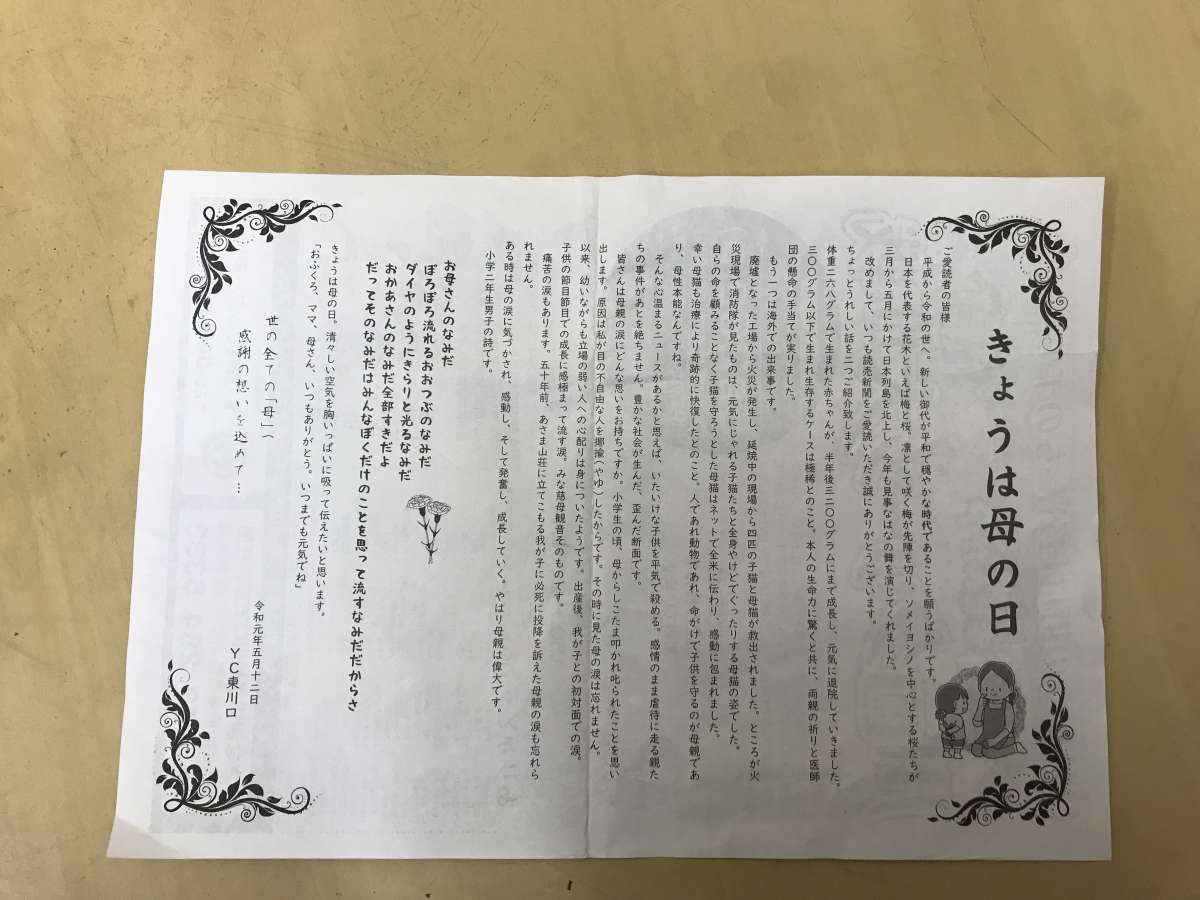 きょうは母の日
ご愛読者の皆様
平成から令和の世へ。新しい御代が平和で穏やかな時代であることを願うばかりです。
日本を代表する花木といえば梅と桜。凛として咲く梅が先陣を切り、ソメイヨシノを中心とする桜たちが
三月から五月にかけて日本列島を北上し、今年も見事なはなの舞を演じてくれました。
改めまして、いつも読売新聞をご愛読いただき誠にありがとうございます。
ちょっとうれしい話を二つご紹介致します。
体重二六八グラムで生まれた赤ちゃんが、半年後三二〇〇グラムにまで成長し、元気に退院していきました。
三〇〇グラム以下で生まれ生存するケースは極稀とのこと。本人の生命力に驚くと共に、両親の祈りと医師
団の懸命の手当てが実りました。
もう一つは海外での出来事です。
廃墟となった工場から火災が発生し、延焼中の現場から四匹の子猫と母猫が救出されました。ところが火
災現場で消防隊が見たものは、元気にじゃれる子猫たちと全身やけどでぐったりする母猫の姿でした。
自らの命を顧みることなく子猫を守ろうとした母猫はネットで全米に伝わり、感動に包まれました。
幸い母猫も治療により奇跡的に快復したとのこと。人であれ動物であれ、命がけで子供を守るのが母親であ
り、母性本能なんですね。
そんな心温まるニュースがあるかと思えば、いたいけな子供を平気で殺める。感情のまま虐待に走る親た
ちの事件があとを絶ちません。豊かな社会が生んだ、歪んだ断面です。
皆さんは母親の涙にどんな思いをお持ちですか。小学生の頃、母からしこたま叩かれ叱られたことを思い
出します。原因は私が目の不自由な人を揶揄(やゆ)したからです。その時に見た母の涙は忘れません。
以来、幼いながらも立場の弱い人への心配りは身についたようです。出産後、我が子との初対面での涙。
子供の節目節目での成長に感極まって流す涙。みな慈母観音そのものです。
痛苦の涙もあります。五十年前、あさま山荘に立てこもる我が子に必死に投降を訴えた母親の涙も忘れら
れません。
ある時は母の涙に気づかされ、感動し、そして発奮し、成長していく。やはり母親は偉大です。
小学二年生男子の詩です。
お母さんのなみだ
ぽろぽろ流れるおおつぶのなみだ
ダイヤのようにきらりと光るなみだ
おかあさんのなみだ全部すきだよ
だってそのなみだはみんなぼくだけのことを思って流すなみだだからさ
きょうは母の日。清々しい空気を胸いっぱいに吸って伝えたいと思います。
「おふくろ、ママ、母さん、いつもありがとう。いつまでも元気でね」
世の全ての「母」へ
感謝の想いを込めて…
令和元年五月十二日
YC東川口